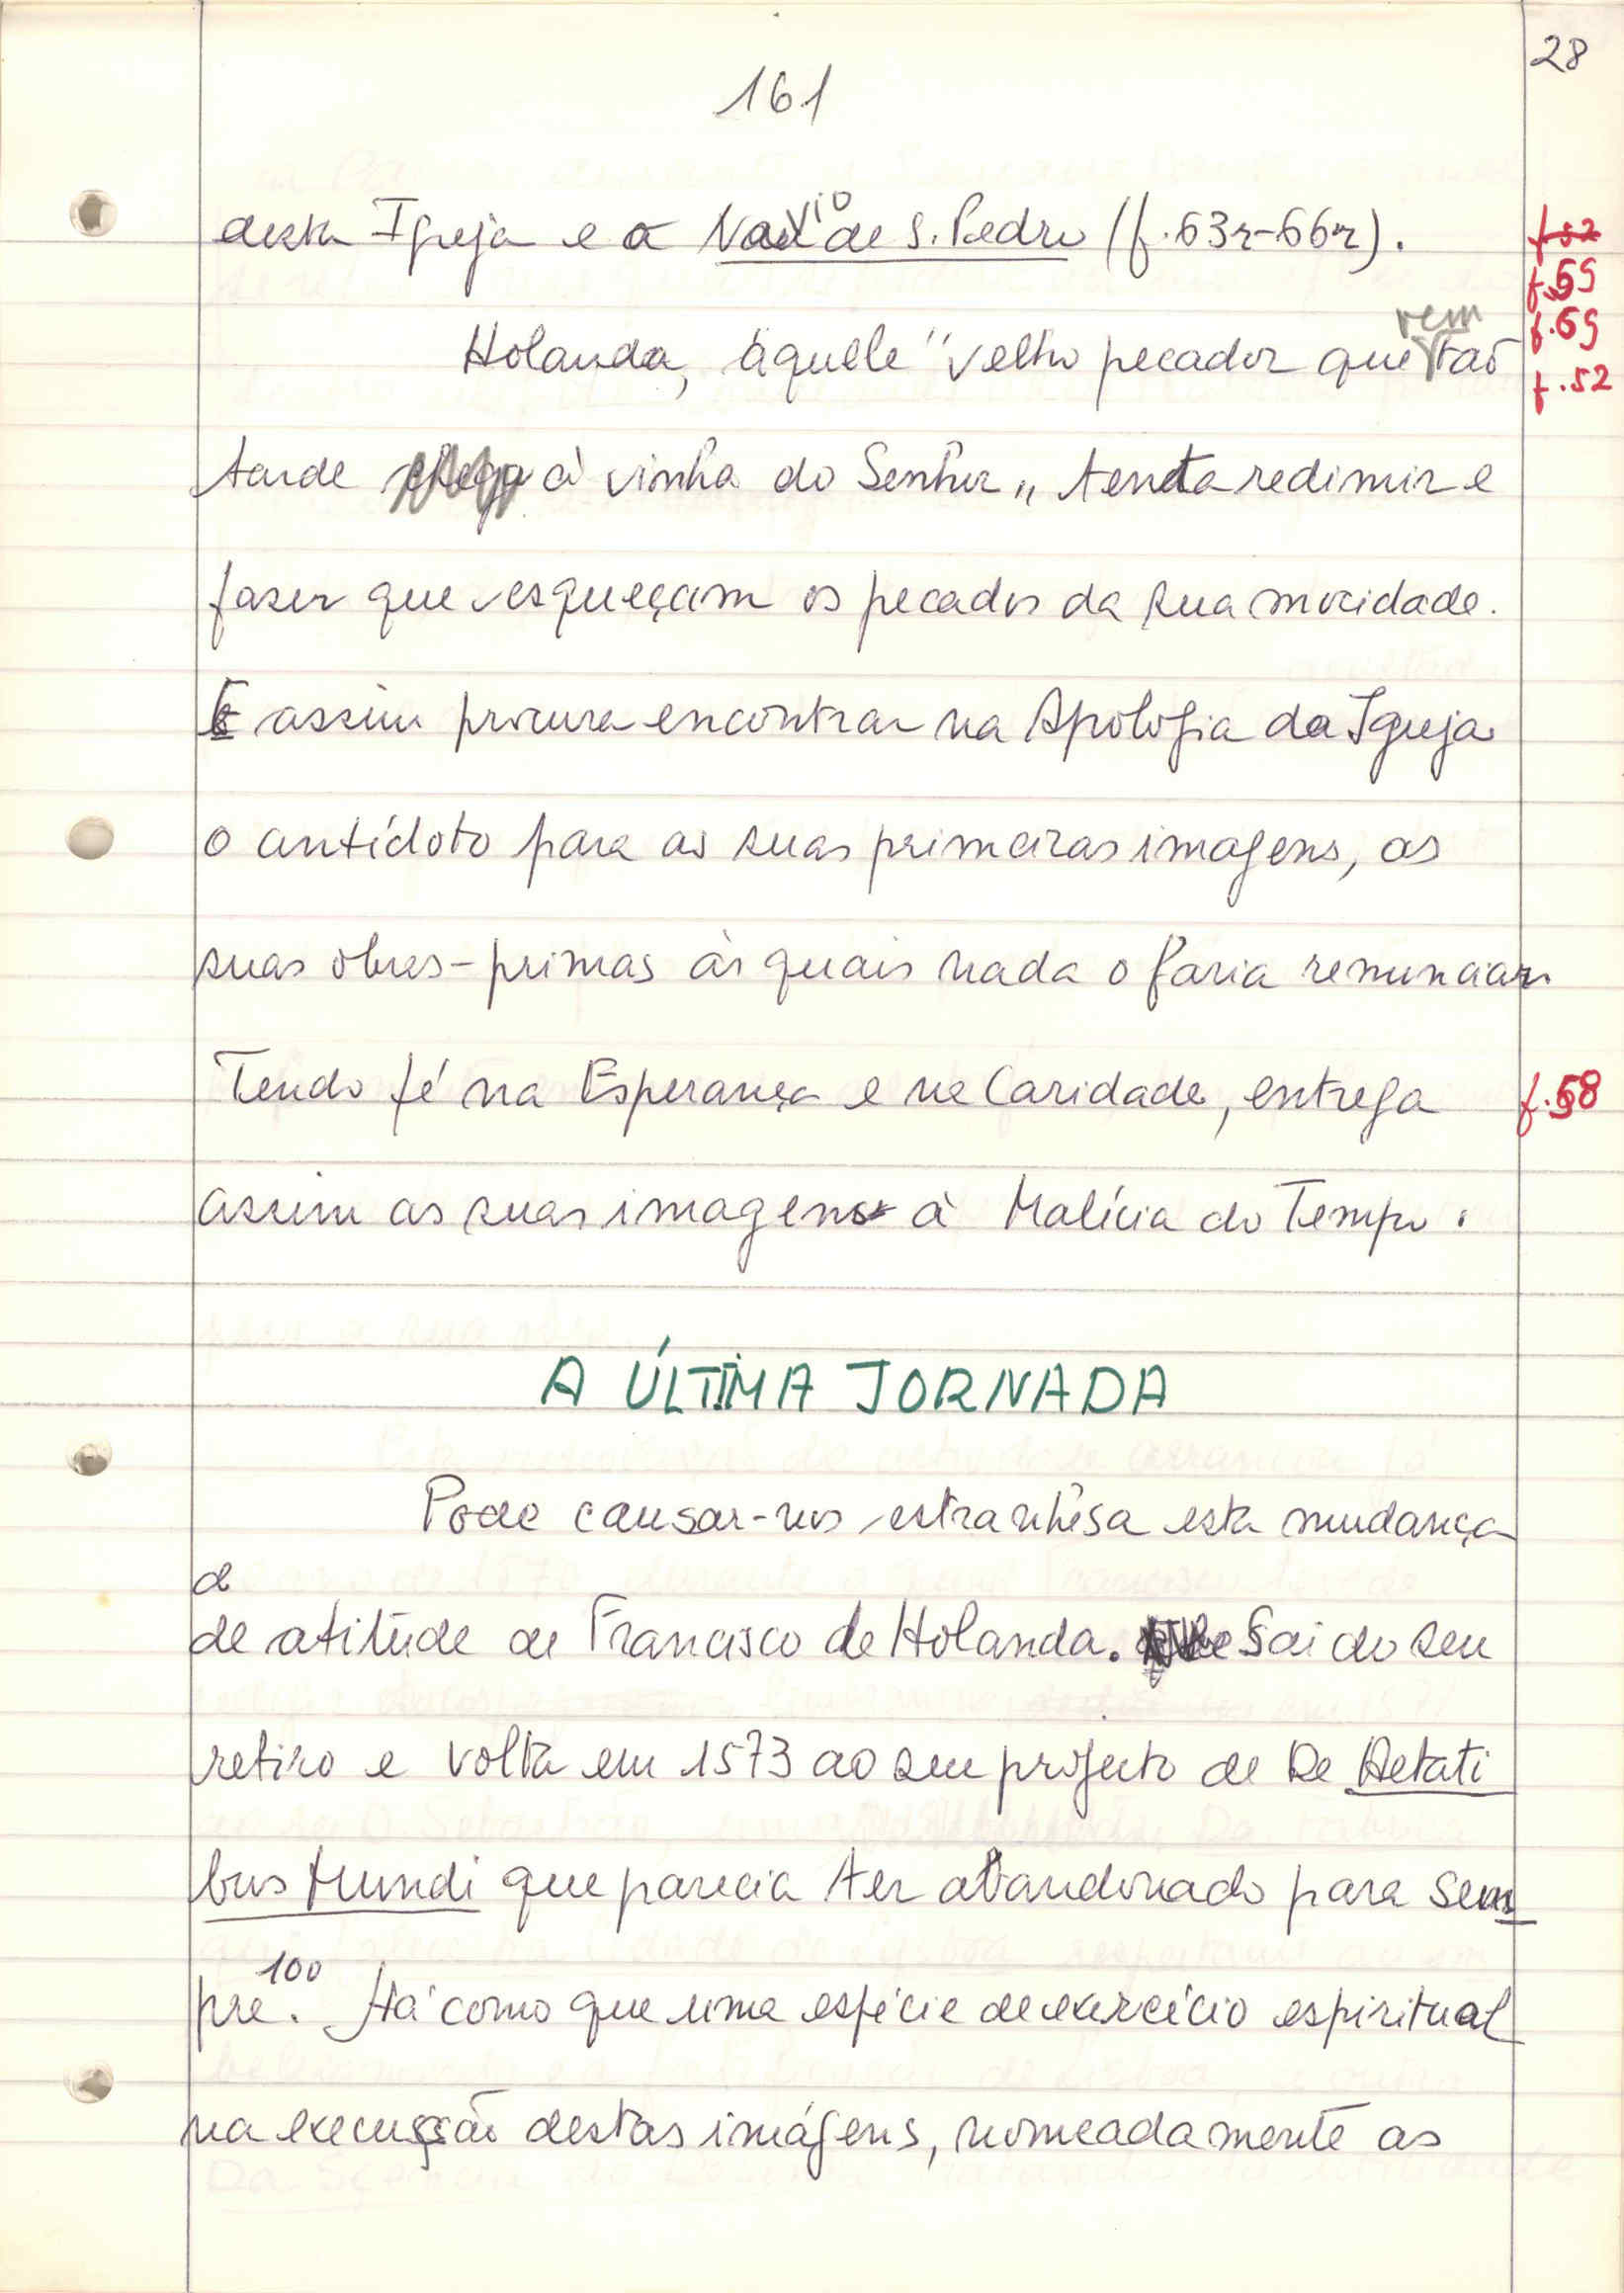 28
161
desta Igreja e o Navio de S. Pedro (f.63r-66r).
f.52
f.59
f.69
Holanda, aquele "velho pecador que vem tão
f.52
tarde à vinha do Senhor" tenta redimir e
fazer que esqueçam os pecados da sua mocidade.
E assim procura encontrar na Apologia da Igreja
o antídoto para as suas primeiras imagens, as
suas obras-primas às quais nada o faria renunciar.
Tendo fé na Esperança e na Caridade, entrega
f.58
assim as suas imagens à Malícia do Tempo.
A ÚLTIMA JORNADA
Pode causar-nos estranhêsa esta mudança
d
de atitude de Francisco de Holanda. Sai do seu
retiro e volta em 1573 ao seu projecto de De Aetati
bus Mundi que parecia ter abandonado para sem
pre.100 Há como que uma espécie de exercício espiritual
na execução destas imágens, nomeadamente as